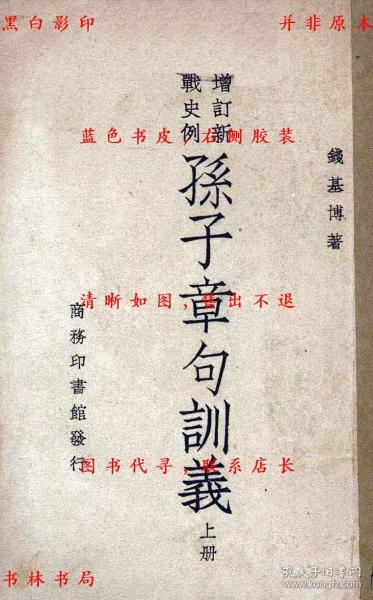 黑白影印
并非原本
錢基博著
增訂新
戰史例
孫子章句訓義
上册
商務印書館發行
蓝色书皮,右侧胶装
清晰如图,售出不退
图书代寻,联系店长
书林书局
孔夫子旧书网